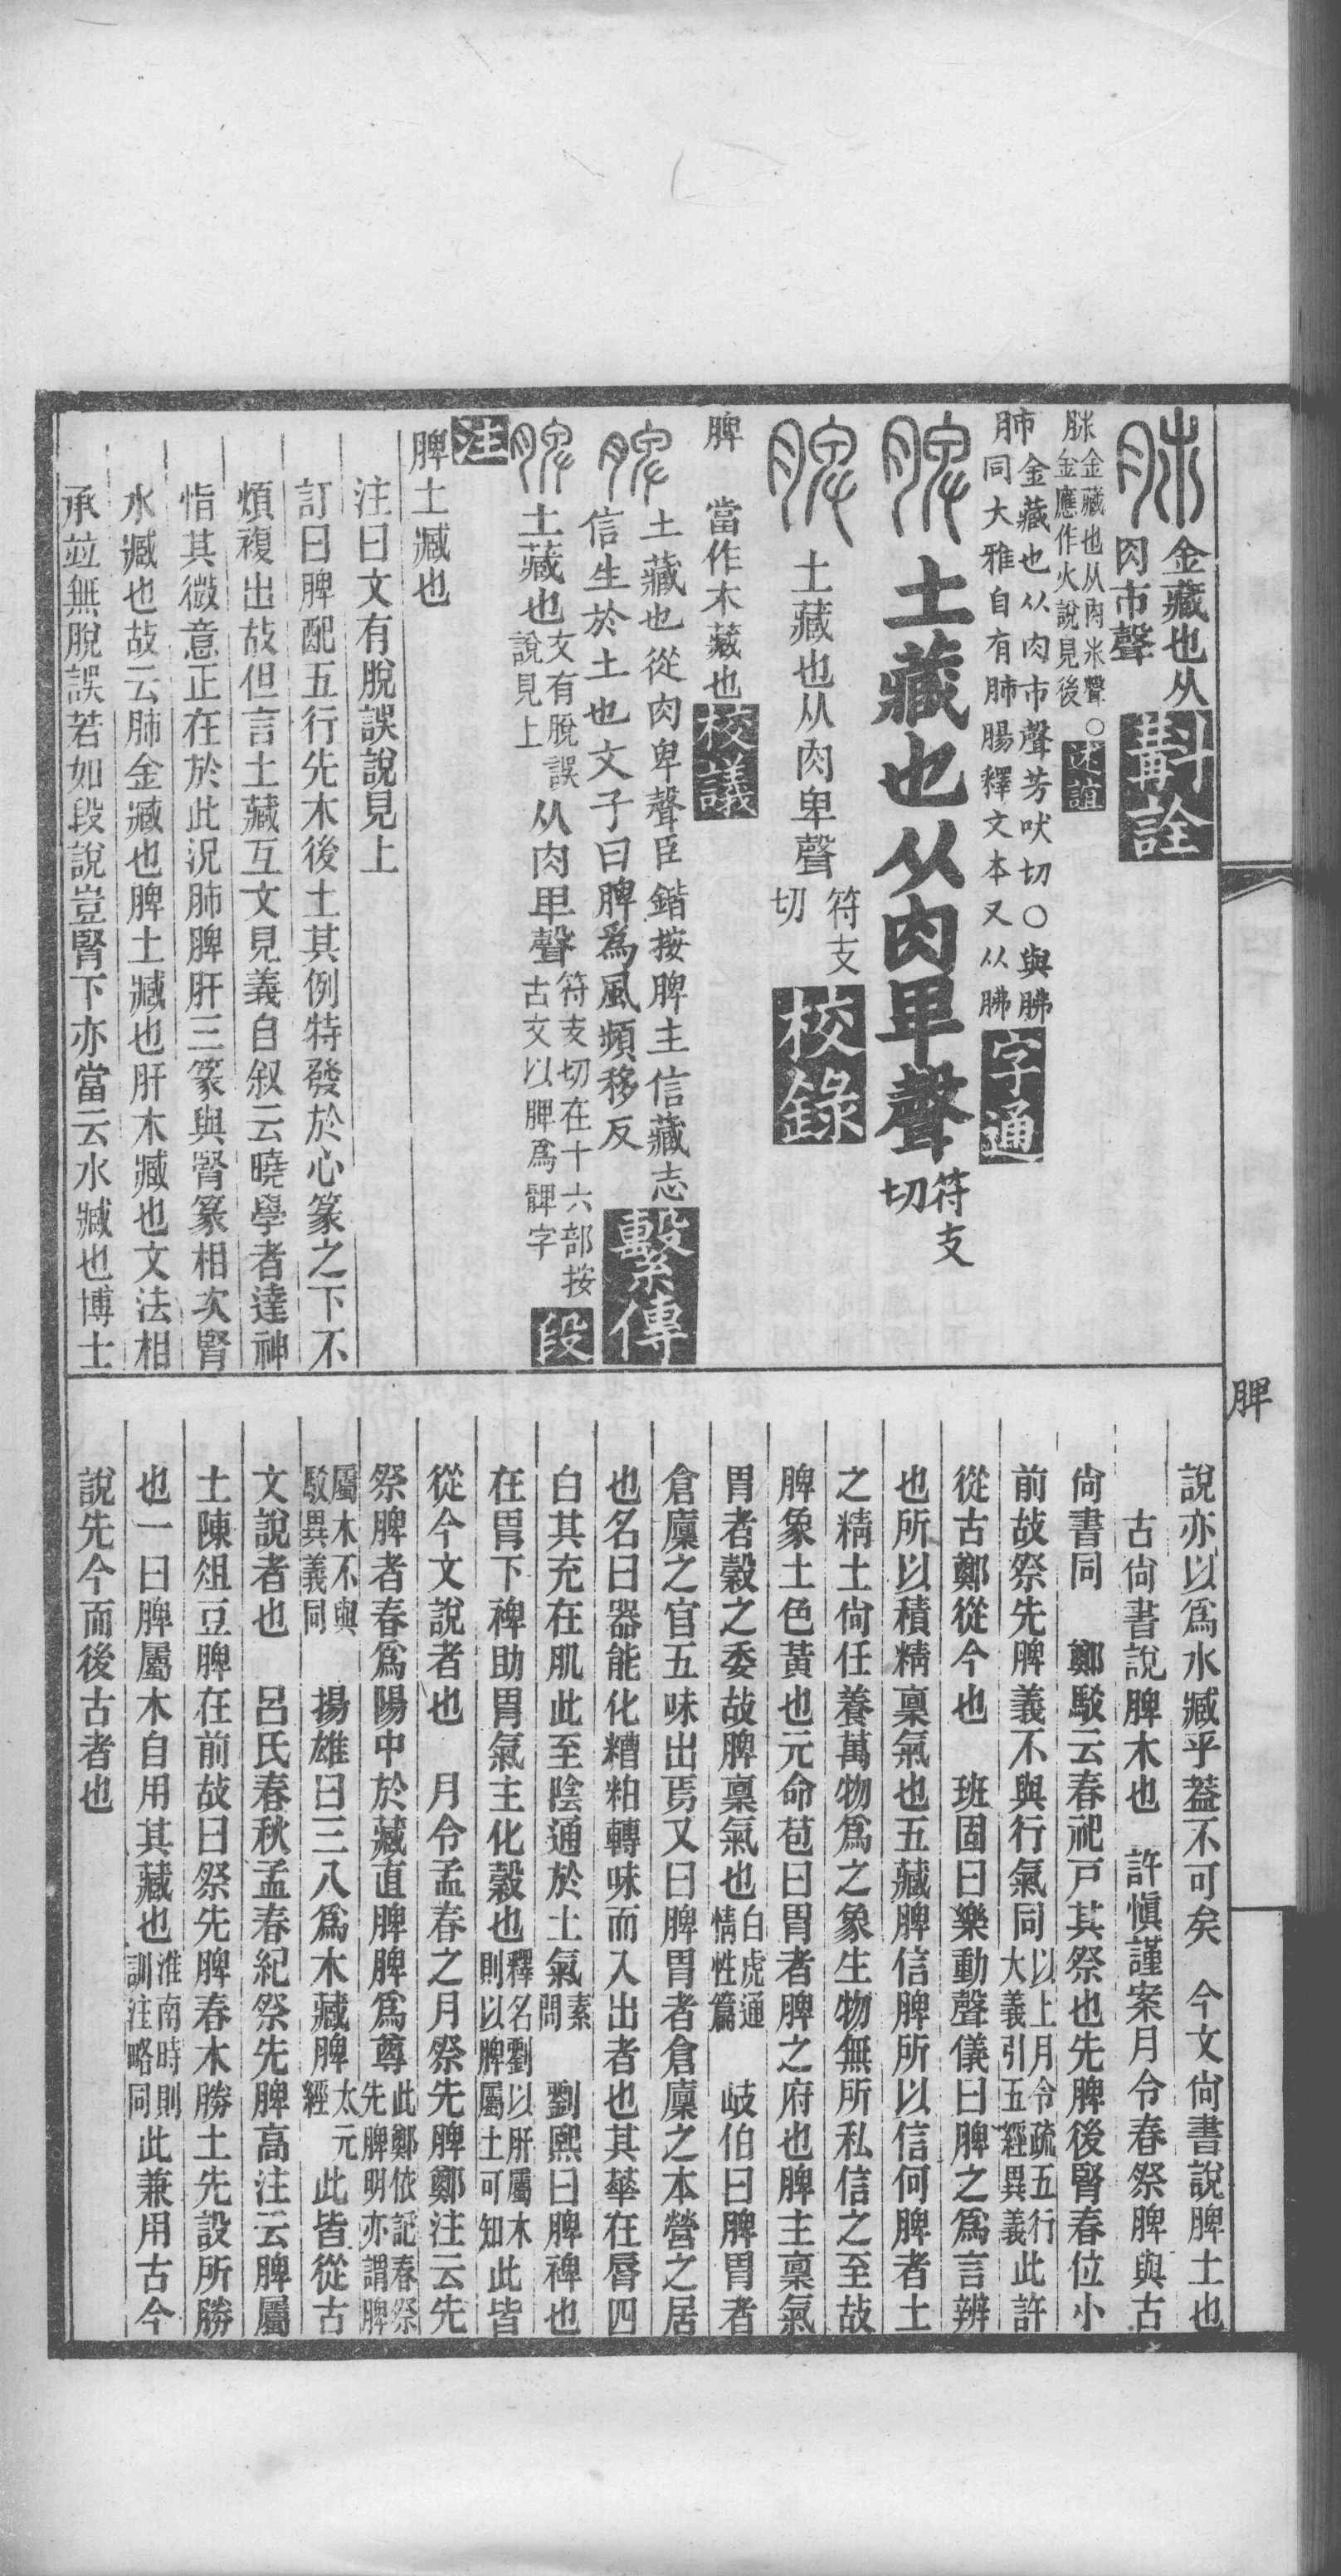 肺金藏也从
肉巿聲𣂏詮
肺金藏也从肉巿聲○述誼
金應作火說見後
肺金藏也从肉巿聲芳吠切○與胇
同大雅自有肺腸釋文本又从胇字通
脾土藏也从肉卑聲符支
切
脾土藏也从肉卑聲符支
切校錄
脾 當作木藏也校議
脾土藏也從肉卑聲臣鍇按脾主信藏志
信生於土也文子曰脾爲風頻移反繫傳
脾土藏也文有脫誤說見上从肉卑聲符支切在十六部按古文以脾爲髀字段
注
脾土臧也
注曰文有脫誤說見上
訂曰脾配五行先木後土其例特發於心篆之下不
煩複出故但言土藏互文見義自叙云曉學者達神
恉其微意正在於此況肺脾肝三篆與腎篆相次腎
水臧也故云肺金臧也脾土臧也肝木臧也文法相
承竝無脫誤若如段說豈腎下亦當云水臧也博士
脾
說亦以爲水臧乎葢不可矣 今文尙書說脾土也
古尙書說脾木也 許愼謹案月令春祭脾與古
尙書同 鄭駁云春祀戸其祭也先脾後腎春位小
前故祭先脾義不與行氣同以上月令疏五行大義引五經異義此許
從古鄭從今也 班固曰樂動聲儀曰脾之爲言辨
也所以積精稟氣也五藏脾信脾所以信何脾者土
之精土尙任養萬物爲之象生物無所私信之至故
脾象土色黃也元命苞曰胃者脾之府也脾主稟氣
胃者穀之委故脾稟氣也白虎通情性篇 岐伯曰脾胃者
倉廩之官五味出焉又曰脾胃者倉廩之本營之居
也名曰器能化糟粕轉味而入出者也其華在脣四
白其充在肌此至陰通於土氣素問 劉熙曰脾裨也
在胃下裨助胃氣主化穀也釋名劉以肝屬木則以脾屬土可知此皆
從今文說者也 月令孟春之月祭先脾鄭注云先
祭脾者春爲陽中於藏直脾脾爲尊此鄭依記春祭先脾明亦謂脾
屬木不與駁異義同 揚雄曰三八爲木藏脾太元經此皆從古
文說者也 呂氏春秋孟春紀祭先脾高注云脾屬
土陳俎豆脾在前故曰祭先脾春木勝土先設所勝
也一曰脾屬木自用其藏也淮南時則訓注略同此兼用古今
說先今而後古者也